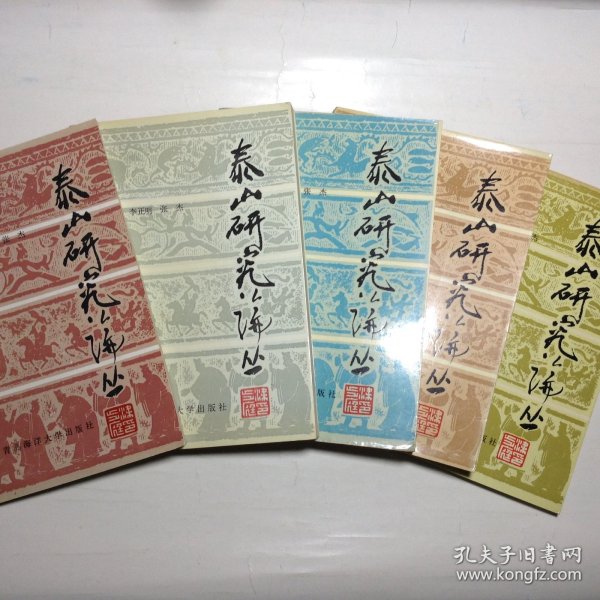 张 杰
泰山研究论丛
青岛海洋大学出版社
李正明 张 杰
泰山研究论丛
大学出版社
张 杰
泰山研究论丛
版社
泰山研究论丛
杰
泰山研究论丛
版社
孔夫子旧书网
www.kongfz.com